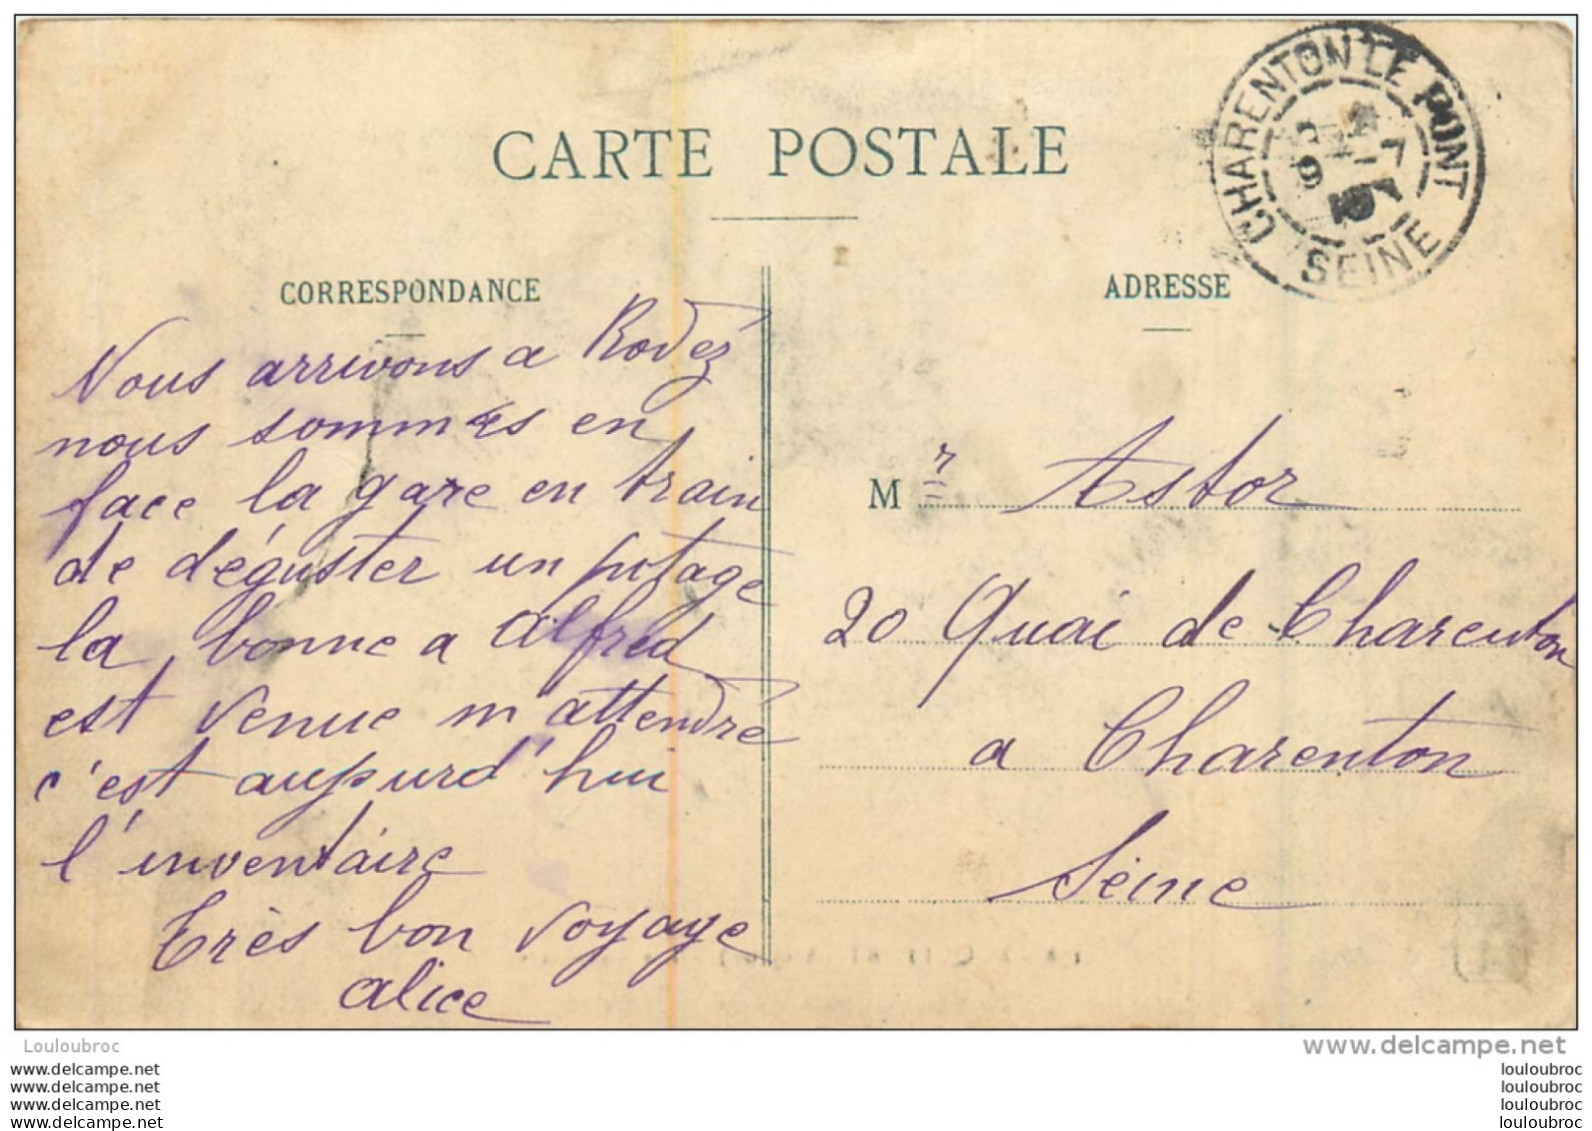 CARTE POSTALE
CHARENTON LE PONT
SEINE
CORRESPONDANCE
Nous arrivons a Rodéz
nous sommes en
face la gare en train
de déguster un potage
la bonne a alfred
est venue m'attendre
c'est aujourd'hui
l'inventaire
Très bon voyage
alice
ADRESSE
Mr Astor
20 Quai de Charenton
a Charenton
Seine
Louloubroc
www.delcampe.net
www.delcampe.net
www.delcampe.net
www.delcampe.net
www.delcampe.net
louloubroc
louloubroc
louloubroc
louloubroc